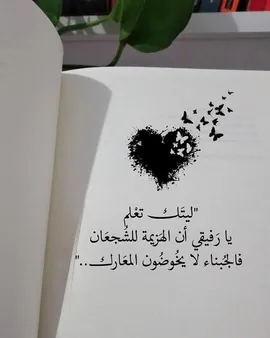 "ليتَـك تعْلم
يا رَفيقي أن الهَزيمة للشُجعَان
فالجُبناء لا يخُوضُون المعَارك.."